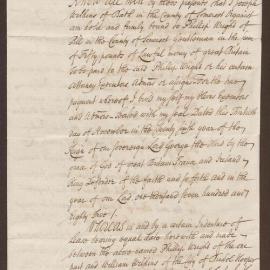 Know all men by these presents that I Joseph
of Bath in the County of Somerset
am held and firmly bound to Phillip Wright of
in the County of Somerset Gentleman in the sum
of Fifty pounds of Lawful money of great Britain
to be paid to the said Phillip Wright or his certain
Attorney Executors Admrs or assigns For the true
payment whereof I bind my self my Heirs Executors
and Admrs Sealed with my Seal Dated this
day of November in the twenty year of the
Reign of our Sovereign Lord George the third by the
grace of God of great Britain France and Ireland
King Defender of the faith and so forth and in the
year of our Lord one thousand seven hundred and
eighty two
Whereas in and by a certain Indenture of
lease bearing equal date herewith and made
between the above named Phillip Wright of the one
part and William of the City of Bristol